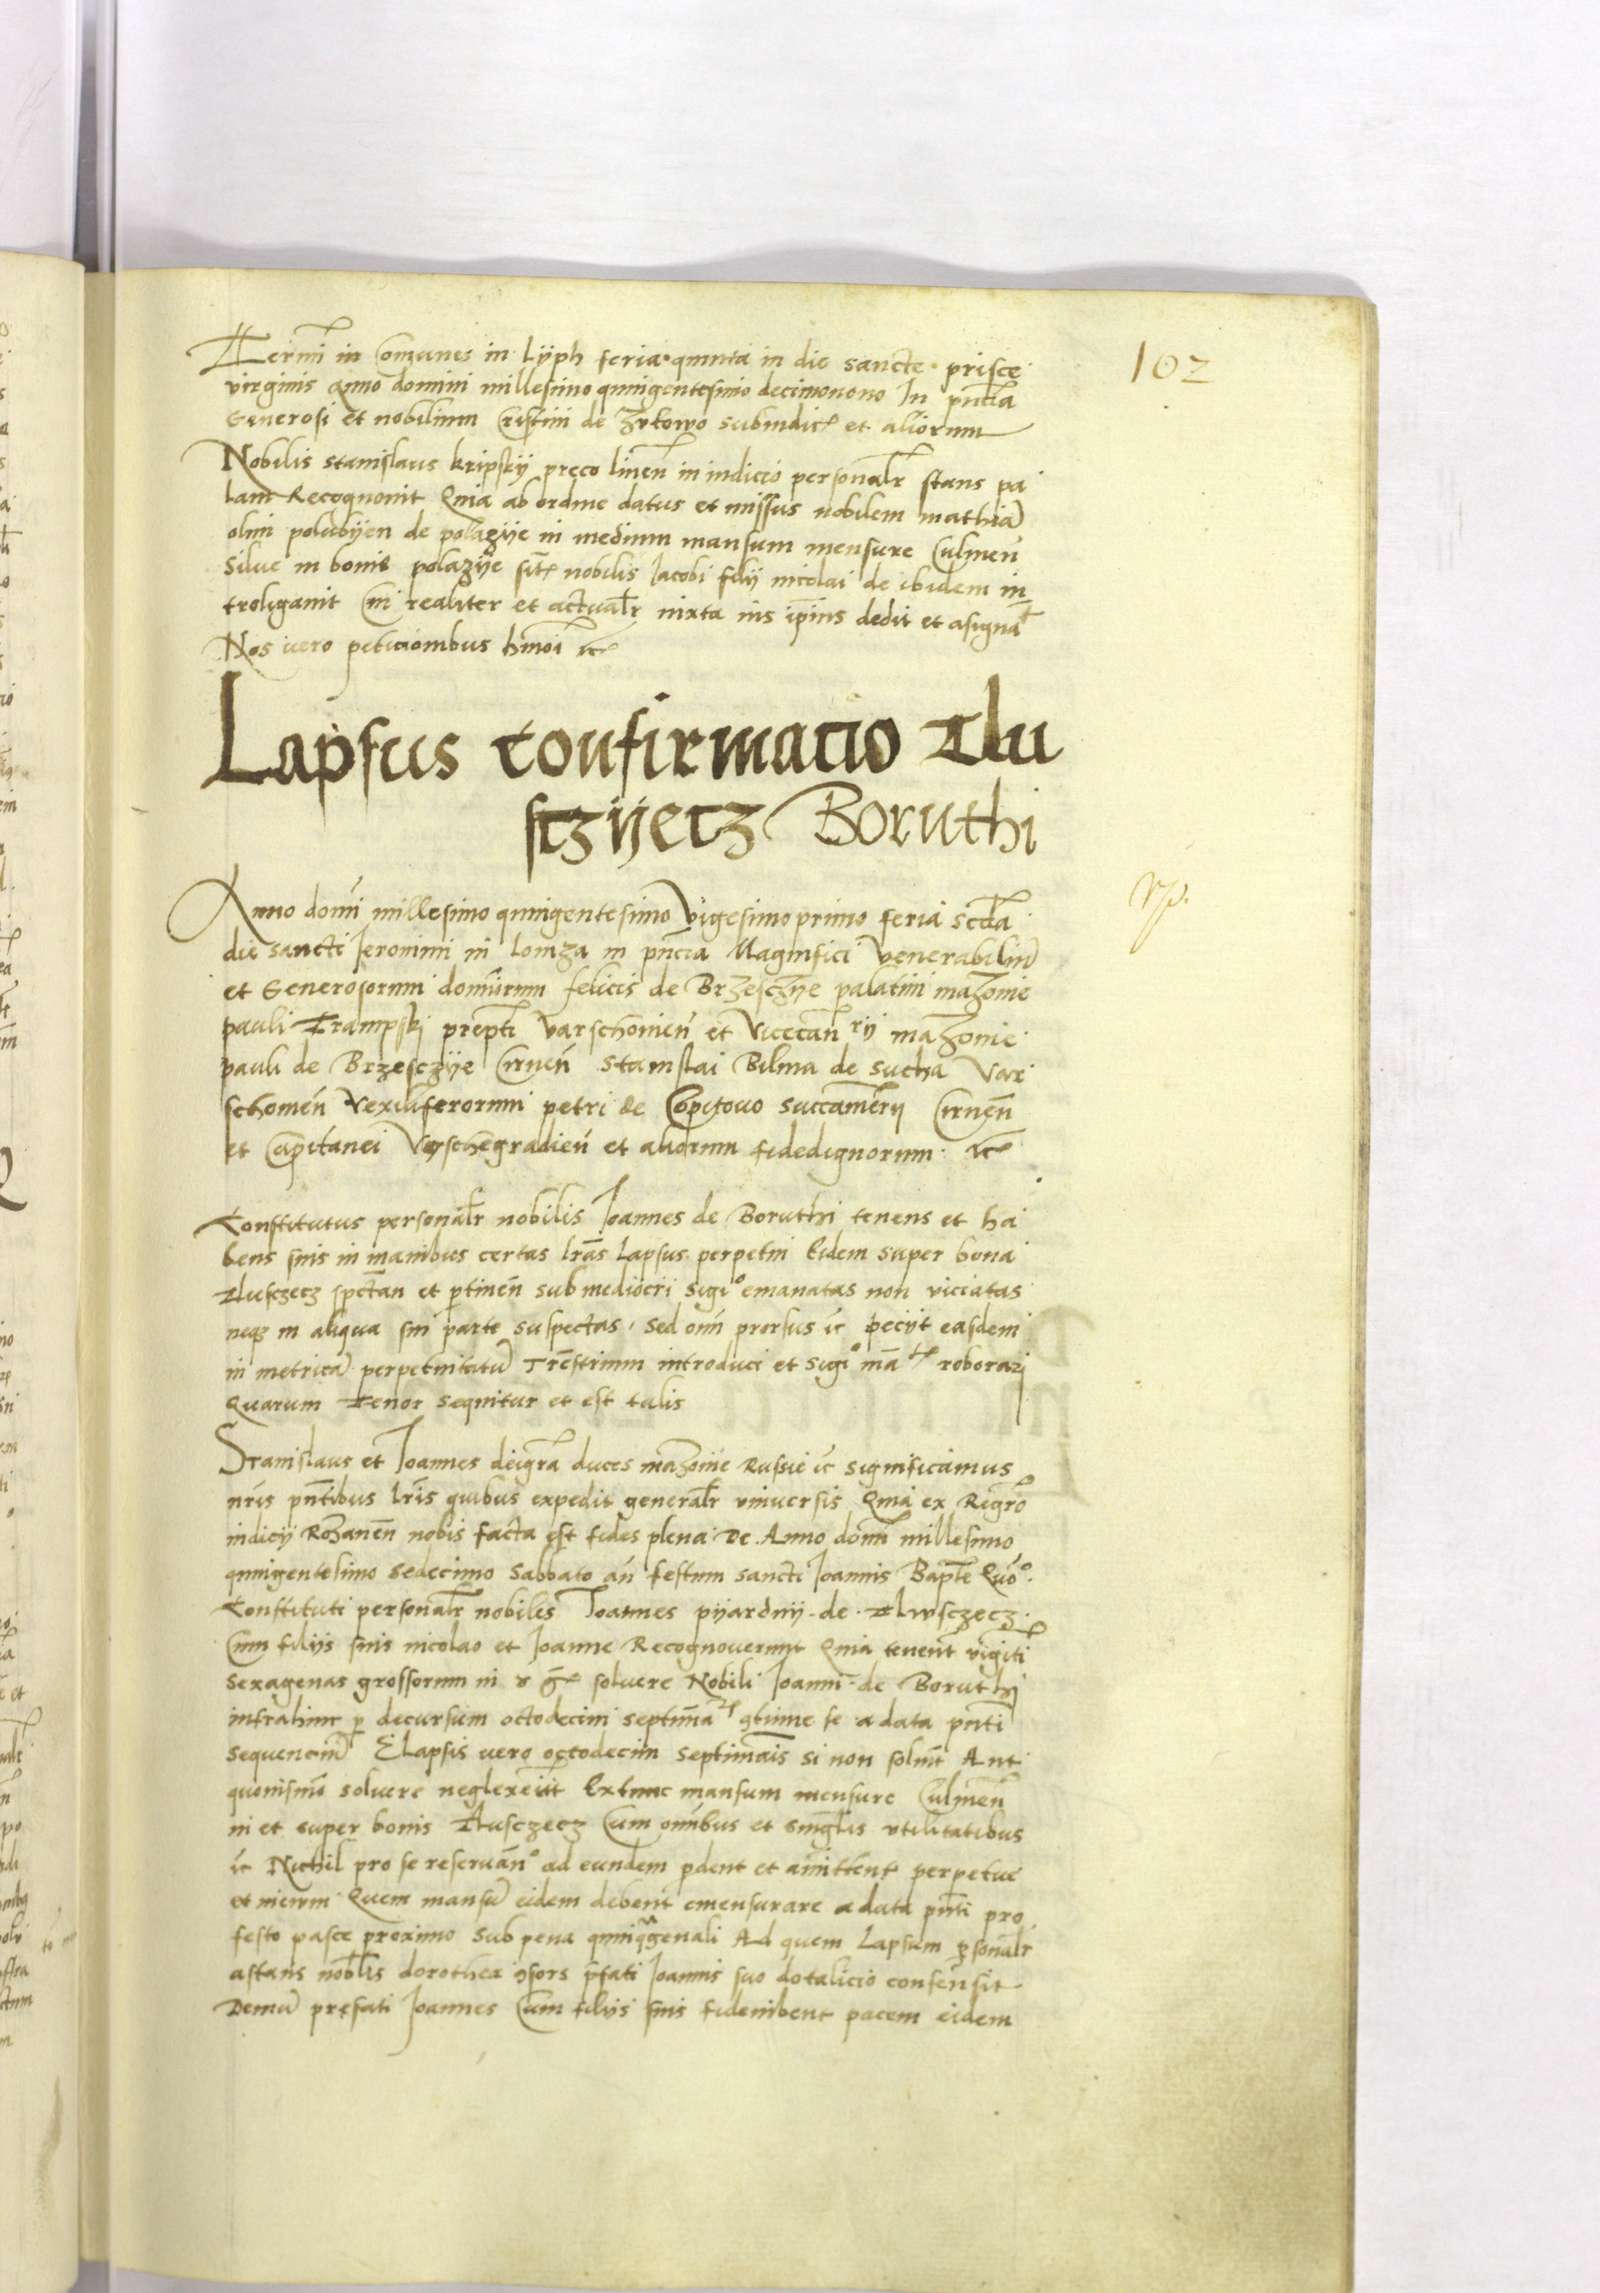 102
Termī in Com̄unes in lÿph feria quinta in die sancte prisce
virginis Anno domini millesimo quingentesimo decimonono In pn̄cia
Generosi et nobilium Cristini de Zytowo subiudic̄ et aliorum
Nobilis stanislaus kripskÿ preco linen̄ in iudicio personalr̄ stans pa
lam Recognouit Quia ab ordine datus et missus nobilem mathiā
olim polubÿen de polazÿe in medium mansum mensure Culmen̄
Silue in bonis polazÿe sit̄ nobilis Jacobi filÿ nicolai de ibidem in
troligauit Cui realiter et actualr̄ iuxta ius ip̄ius dedit et asignaͭ
Nos vero peticionibus hmōi ꝛc̄
Lapsus Confirmacio Tlu
sczÿecz Boruthi
vp.
Anno domī millesimo quingentesimo Vigesimoprimo feria scd̄a
die sancti Jeronimi in lomza in pn̄cia Magnifici Venerabiliū
et Generosorum domīrum felicis de Brzesczÿe palatini mazouie
pauli Trampski prepti̅ Varschouien̄ et Vicecan rÿ mazouie
pauli de Brzesczÿe Cirnen̄ Stanislai Bilina de sucha Var
schouien̄ Vexiliferorum petri de Copitouo succamerÿ Cirnen̄
et Capitanei Vÿschegradien̄ et aliorum fidedignorum ꝛc̄
Constitutus personalr̄ nobilis Joannes de Boruthi tenens et ha
bens suis in manibus certas lrās Lapsus perpetui Eidem super bona
Tlusczecz spctan̄ et ptinen̄ sub mediocri sigiͦ emanatas non viciatas
neqꝫ in aliqua sui parte suspectas, sed om̄i prorsus ꝛc̄ peciit easdem
in metricā perpetuitatū Tr̄estrium introduci et sigiͦ māͬͥ roborari
Quarum Tenor sequitur et est talis
Stanislaus et Joannes deigrā duces mazouie Russie ꝛc̄ significamus
nr̄is pn̄tibus lr̄is quibus expedit generalr̄ vniuersis Quia ex Regr̄o
iudicÿ Rozanen̄ nobis facta est fides plena De Anno domī millesimo
quingentesimo sedecimo Sabbato an̄ festum sancti Joannis Bapte̅ Quōͦ.
Constituti personalr̄ nobiles Joannes pÿardnÿ de Tlwsczecz
Cum filÿs suis nicolao et Joanne Recognouerunt Quia tenent̄ vigīti
sexagenas grossorum in soluere Nobili Joanni de Boruthi
infrahinc p decursum octodecim septimāͬͫ ꝯtinue se a data pn̄ti
sequenciū Elapsis vero octodecim septimāis si non soluīt Aut
quouismō soluere neglexerīt Extunc mansum mensure Culmen̄
in et super bonis Tlusczecz Cum om̄ibus et singl̄is vtilitatibus
ꝛc̄ Nichil pro se reseruan̄ͦ ad eundem pdent et amittent perpetue
et in ewm Quem mansū eidem debent emensurare a data pn̄ti pro
festo pasce proximo sub pena quinqͣgenali Ad quem Lapsum psonalr̄
astans nob̄lis dorothea ꝯsors p̄fati Joannis suo dotalicio consensit
Demū prefati Joannes Cum filÿs suis fideiubent pacem eidem